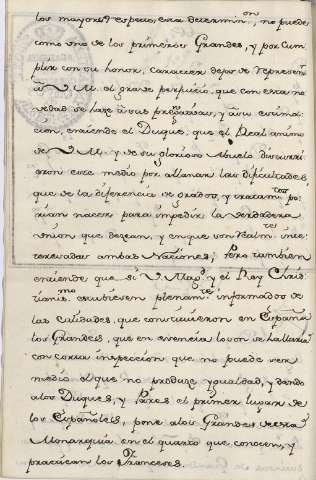 los mayores respecto, esta determin.on, no puede
como uno de los primeros Grandes, y por cum
plir con su honor, caracter dejar de represent.r
a V. M. el grave perjuicio, que con esta no
vedad se haze a sus prerrogativas, y a su estima
cion, entiende el Duque, que el Real animo
de V. M. y de su glorioso Abuelo discurri
eron este medio por allanar las dificultades,
que de la diferencia de grados, y tratam.tos po
rian nacer para impedir la verdadera
union que dezean, y en que son Realm.te inte
resadas ambas Naciones; Pero tambien
entiende que si V. Mag.d y el Rey Chris
tianis.mo estubiesen plenam.te informados de
las calidades, que constituieron en España
los Grandes, que en esencia lo son se hallaria
con corta inspeccion que no puede ser
medio el que no produze ygualdad, y dando
a los Duques, y Pares el primer lugar de
los Españoles, pone a los Grandes de esta
Monarquia en el quarto que conocen, y
practican los Franceses.